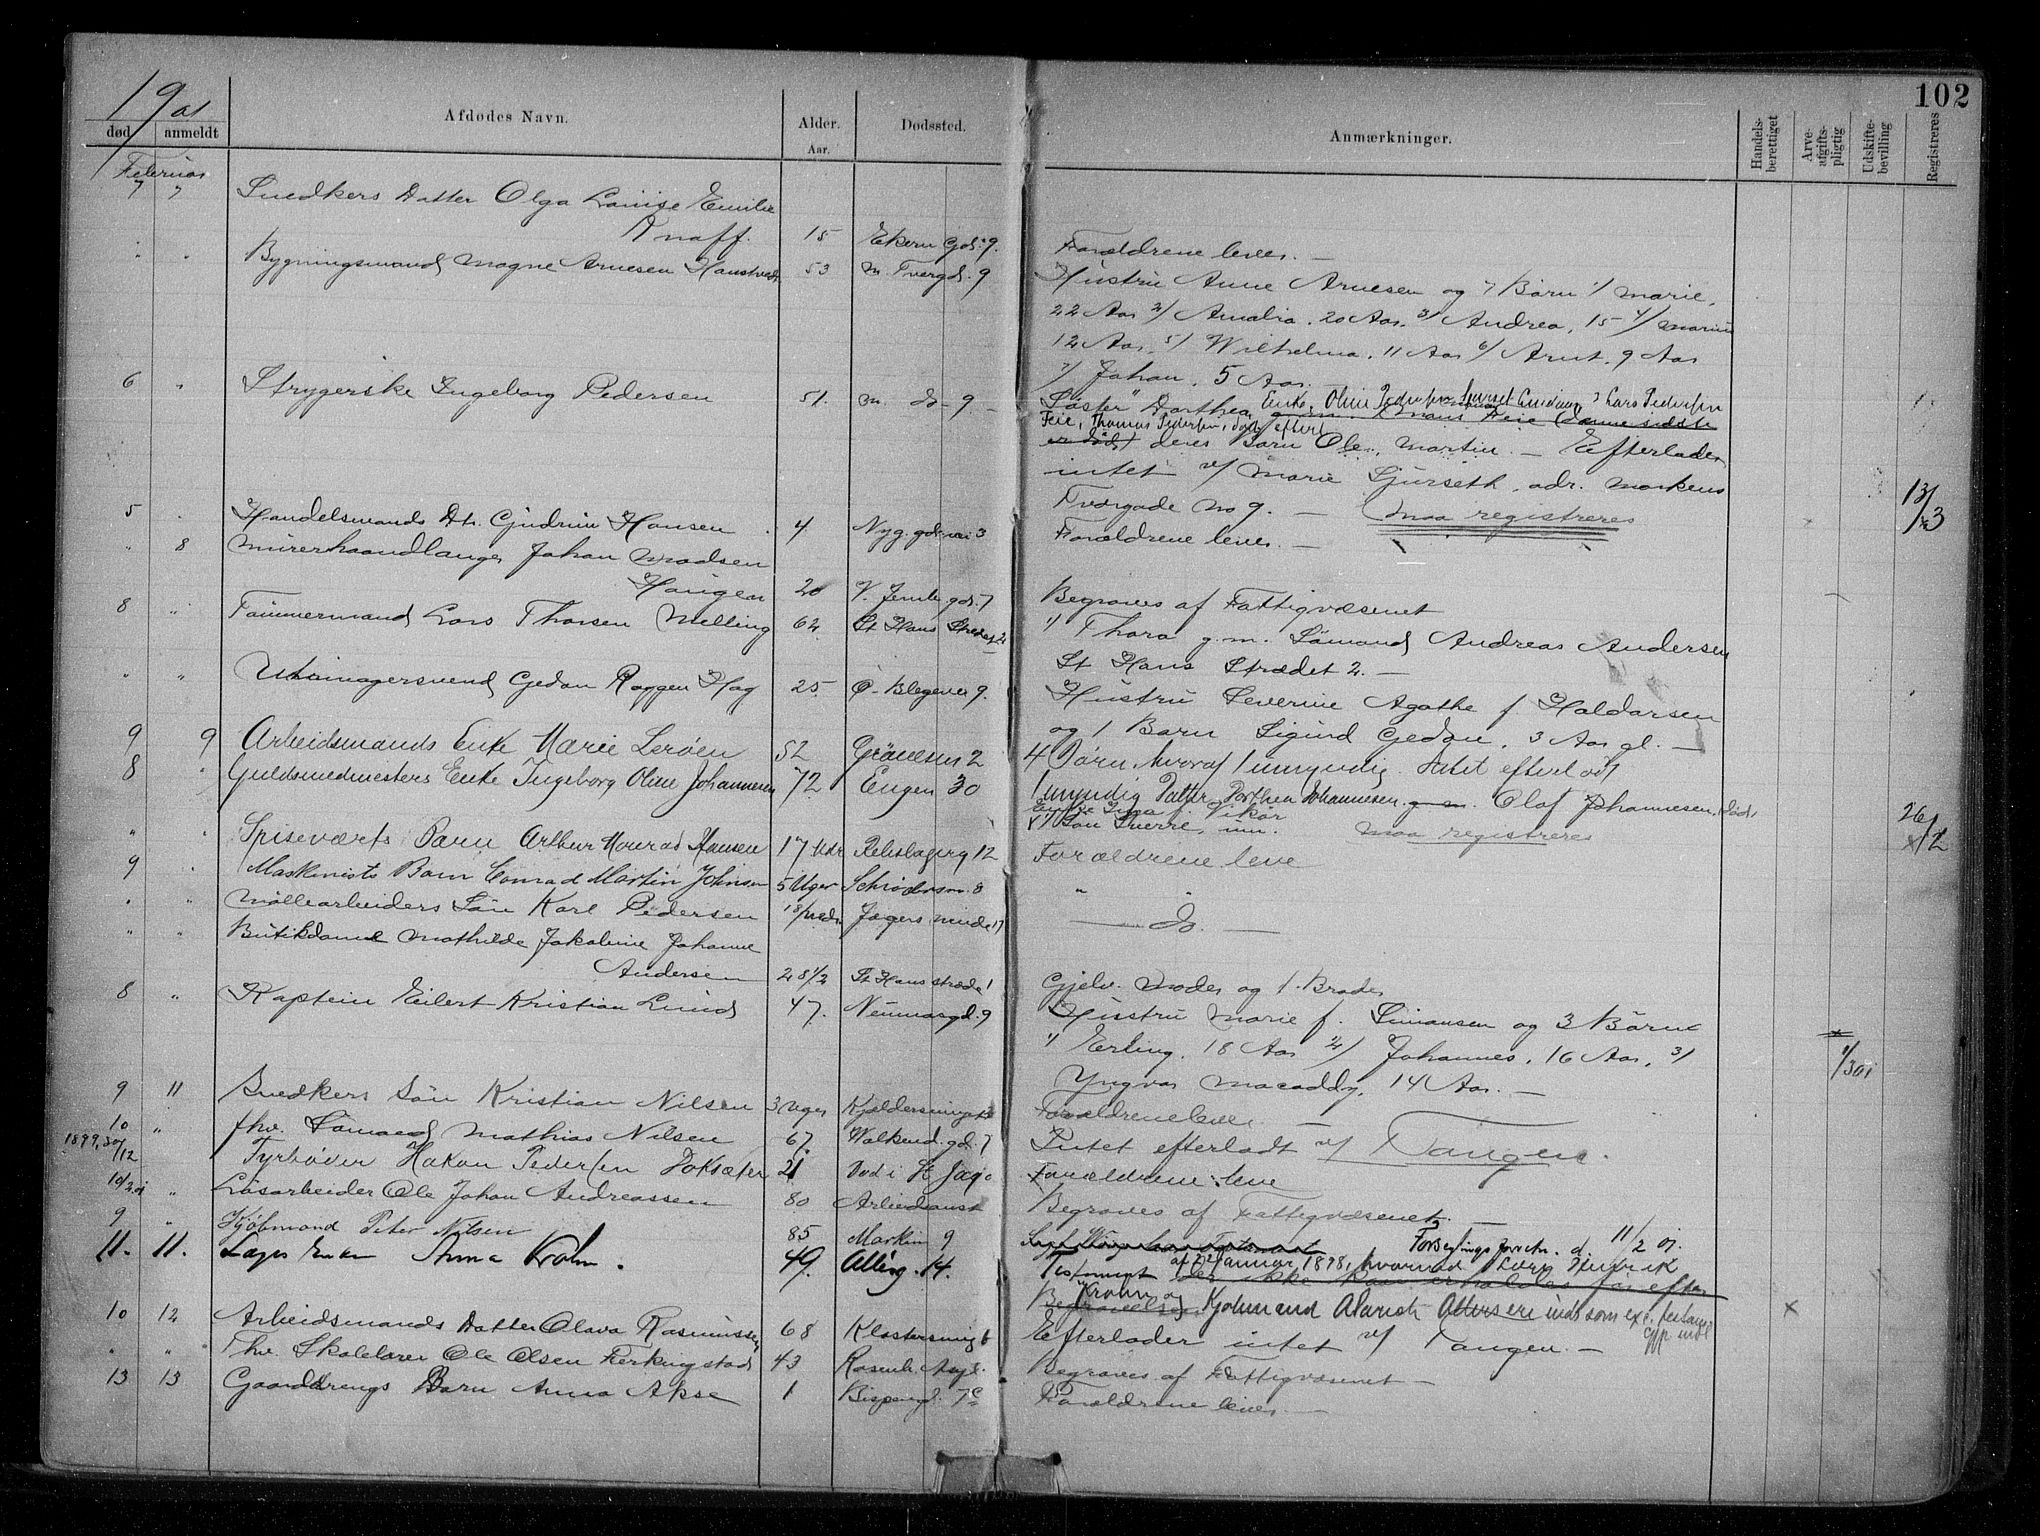 102
1901
død anmeldt Afdødes Navn. Alder. Aar. Dødssted. Anmærkninger. Handelsberettiget Arveafgiftspligtig Udskiftebevilling Registreres
Februar
7 7 Snedkers Datter Olga Louise Emilie
Knaff. 15 Ekern Gd. 9. Forældrene lever. —
" " Bygningsmand Magne Arnesen Hanstvedt 53 m. Tvergd. 9 Hustru Anne Arnesen og 7 Børn 1/ Marie,
22 Aar 2/ Amalia, 20 Aar, 3/ Andrea, 15 4/ Marius
12 Aar, 5/ Wilhelma, 11 Aar 6/ Arnt, 9 Aar
7/ Johan, 5 Aar. —
6 " Strygerske Ingeborg Pedersen 51. m. do 9 — Søster Dorthea Enke, Oline Pedersen 3 Lars Pedersen
Feie, Thomas Pedersen, død, efterl
er død) deres Børn Ole, Martin. — Efterlader
intet v/ Marie Sjurseth, adr. Markens
Tvergade No 9. — maa registreres 13/3
5 " Handelsmands Dtr. Gudrun Hansen 4 Nyg. gd. 3 Forældrene lever. —
" 8 Murerhaandlanger Johan Madsen
Haugen 20 V. Jernb. gd. 7 Begraves af Fattigvæsenet
8 " Tømmermand Lars Thorsen Melling 64 St Hans Strædet 2 1/ Thora g.m. Sømand Andreas Andersen
St Hans Strædet 2. —
" " Uhrmagersvend Gedan Roggen Hag 25. Ø. Blegevei 9. Hustru Severine Agathe f. Haldorsen
og 1 Barn Sigurd Gedan, 3 Aar gl. —
9 9 Arbeidsmands Enke Marie Lerøen 52 Grønevei 2 4 Børn, hvoraf 1 umyndig. Intet efterladt
8 " Guldsmedmesters Enke Ingeborg Oline Johannesen 72 Engen 30 1 umyndig Datter Dorthea Johannesen. Olaf Johannesen, død,
v/ Søn Sverre, um. maa registreres 26/2
" " Spiseværts Barn Arthur Konrad Hansen 17 Mdr Rebslagerg 12 Forældrene leve
9 " Maskinists Barn Conrad Martin Johnsen 5 Uger Schrødersm. 8 "
" " Møllearbeiders Søn Karl Pedersen 18 Mdr. Jægers minde 17 — do. —
" " Butikdame Mathilde Jakobine Johanne
Andersen 28 1/2 St Hansstræde 1 Gjelv. Moder og 1 Broder
8 " Kaptein Eilert Kristian Lund 47. Neumansgd. 9 Hustru Marie f. Simonsen og 3 Børn
1/ Erling, 18 Aar 2/ Johannes, 16 Aar, 3/
Yngvar Macaddy, 14 Aar. —
9 11 Snedkers Søn Kristian Nilsen 3 Uger Kjeldersmug Forældrene lever. —
10 " fhv. Sømand Mathias Nilsen 67. Walkend. gd. 7 Intet efterladt v/ Tangen.
1899, 30/12 Fyrbøder Hakon Pedersen Toksæter 21 Død i St Jago Forældrene leve
10/2 01 " Løsarbeider Ole Johan Andreassen 80 Arbeidsanst Begraves af Fattigvæsenet. —
9 " Kjøbmand Peter Nilsen 85 Marken 9 Forseglingsforretn. d. 11/2 01.
11. 11. Enke Anna Krohn. 49. Alleg. 14. Testament af 22 Januar, 1898, hvorved Henrik
Krohn og Kjøbmand indsat som ex. testam.
10 12 Arbeidsmands Datter Olava Rasmussen 68 Klostersmug 6 Efterlader intet v/ Tangen. —
" " Fhv. Skolelærer Ole Olsen Ferkingstad 43 Rosenb. Asyl. Begraves af Fattigvæsenet —
13 13 Gaarddrengs Barn Anna Akse 1 Bispengd. 7c Forældrene lever. —